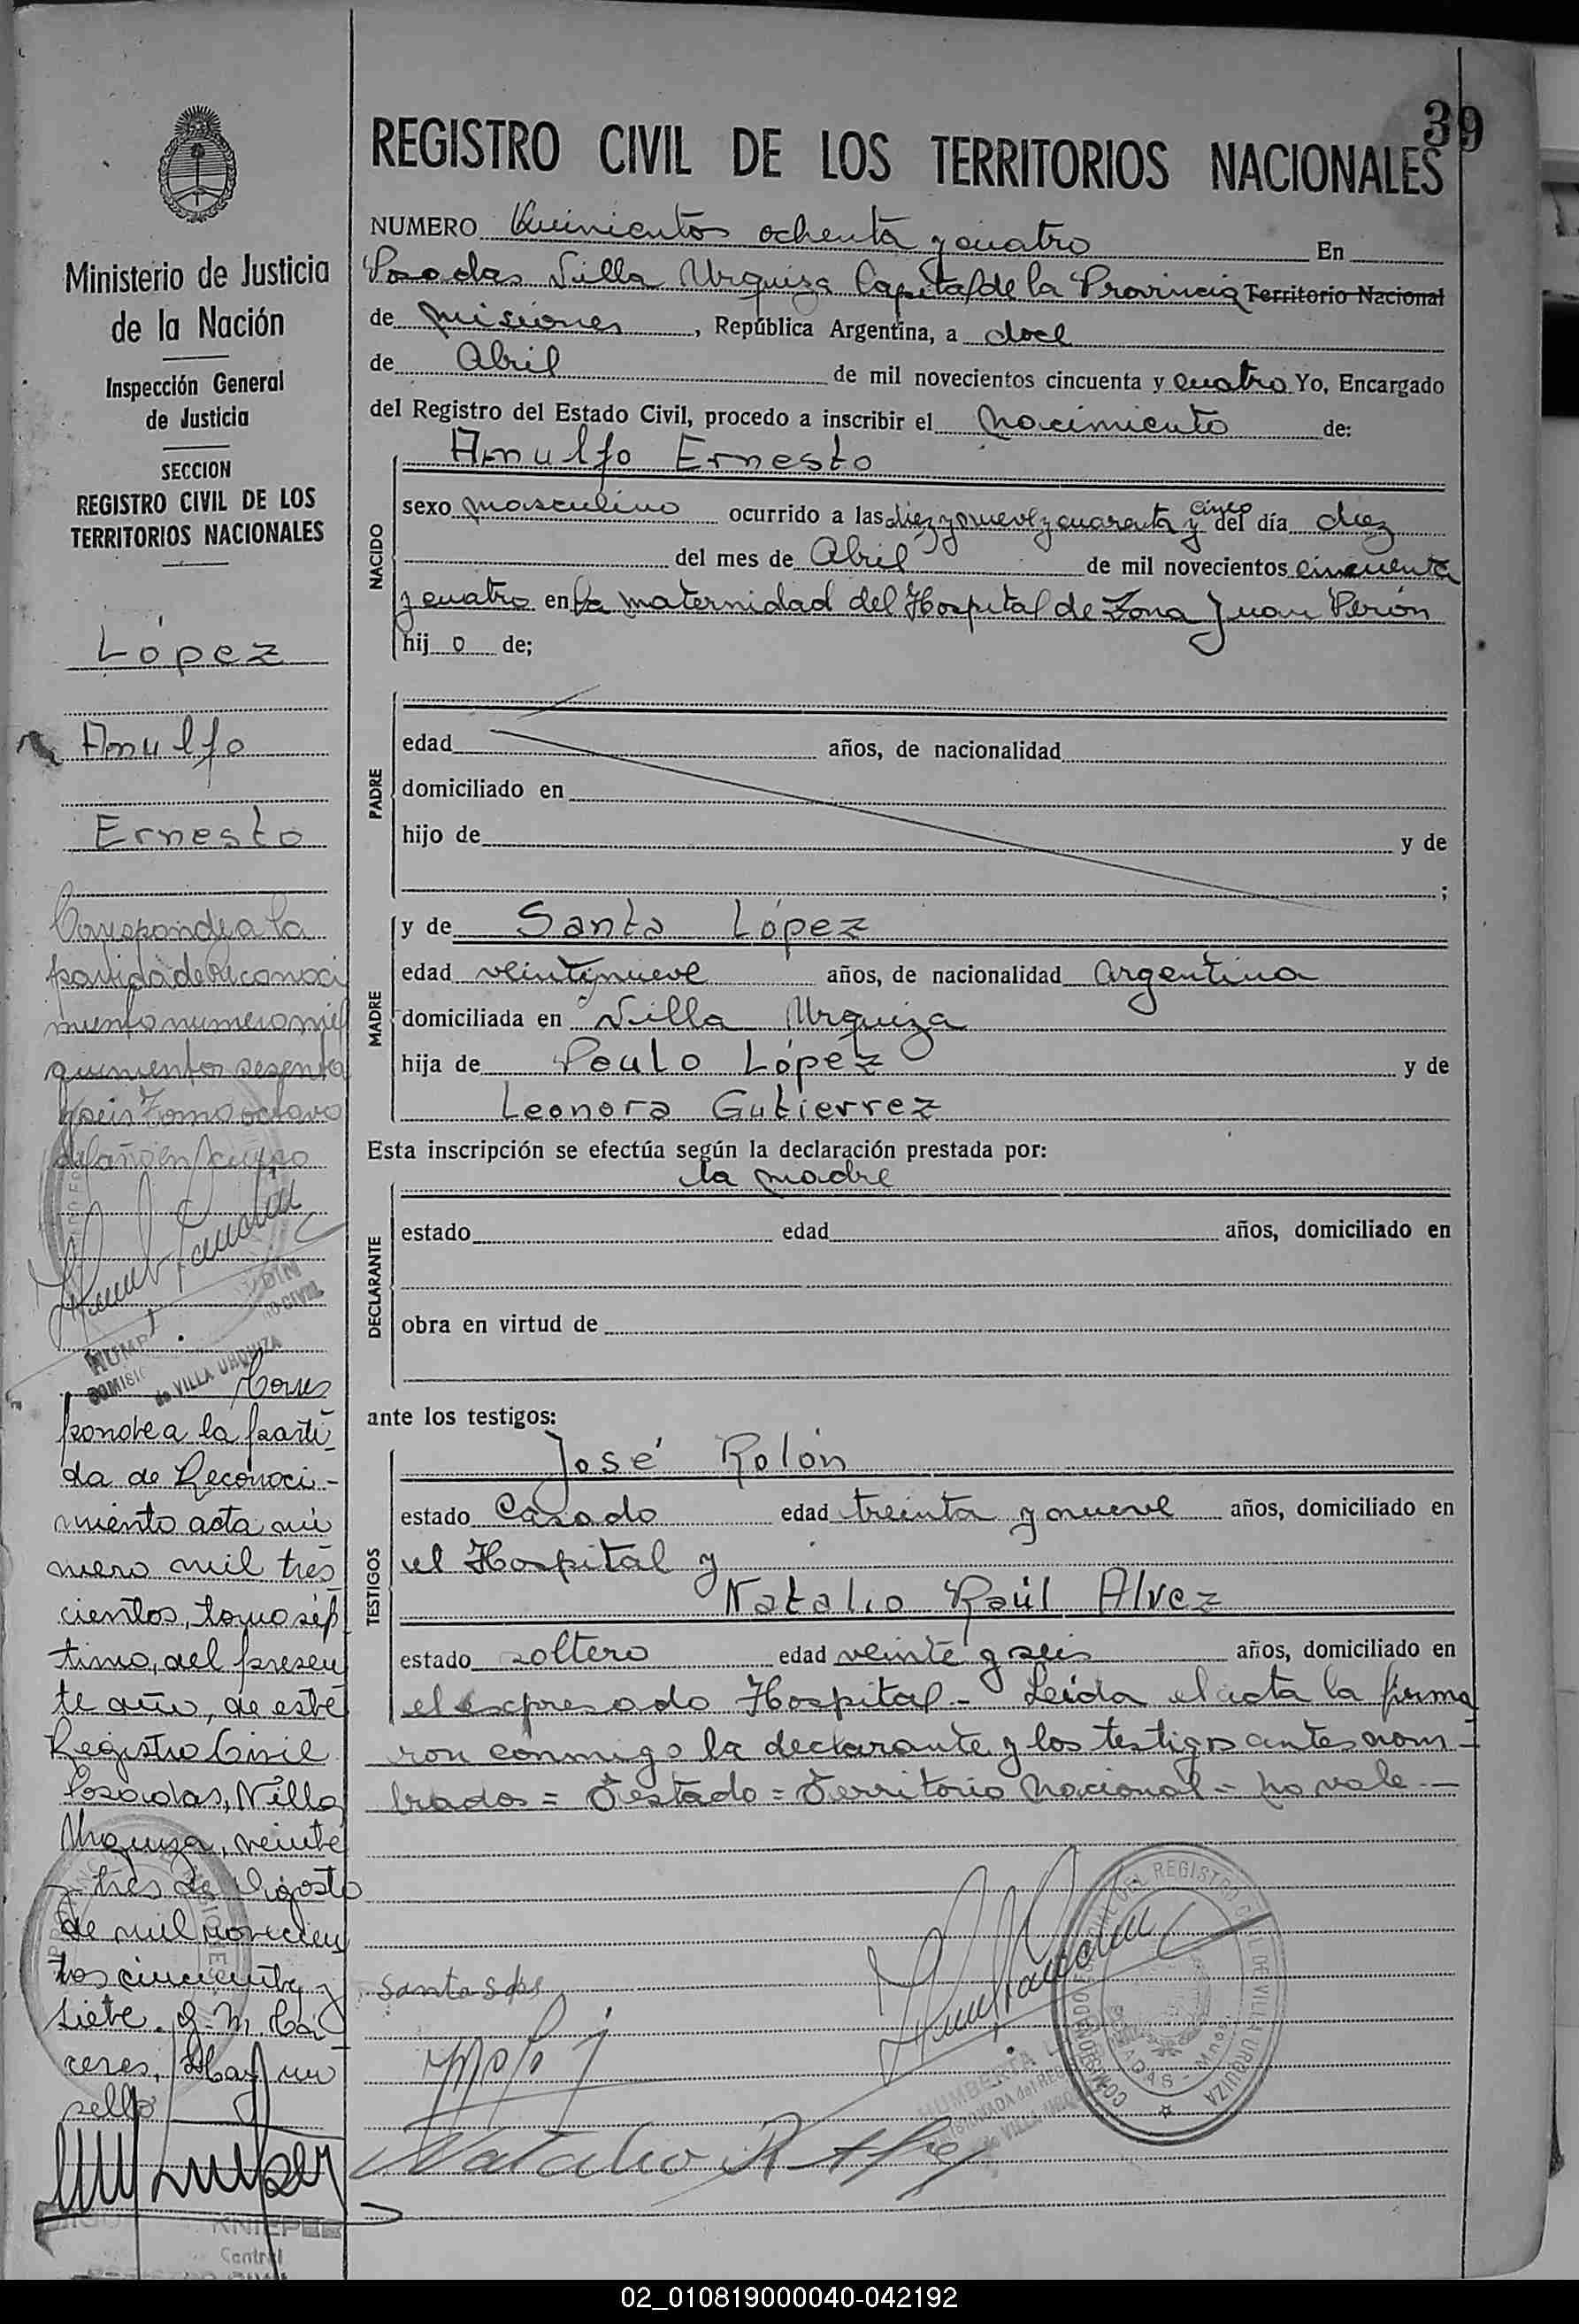 39
REGISTRO CIVIL DE LOS TERRITORIOS NACIONALES
NUMERO Quinientos ochenta y cuatro En
Posadas Villa Urquiza Capital de la Provincia Territorio Nacional
de Misiones, República Argentina, a doce
de Abril de mil novecientos cincuenta y cuatro Yo, Encargado
del Registro del Estado Civil, procedo a inscribir el Nacimiento de:
Arnulfo Ernesto
NACIDO
sexo masculino ocurrido a las diez y nueve y cuarenta y cinco del día diez
del mes de Abril de mil novecientos cincuenta
y cuatro en la maternidad del Hospital de Zona Juan Perón
hij o de;
PADRE
edad años, de nacionalidad
domiciliado en
hijo de y de
;
MADRE
y de Santa López
edad veintinueve años, de nacionalidad argentina
domiciliada en Villa Urquiza
hija de Paulo López y de
Leonora Gutierrez
Esta inscripción se efectúa según la declaración prestada por:
la madre
DECLARANTE
estado edad años, domiciliado en
obra en virtud de
ante los testigos:
TESTIGOS
José Rolón
estado Casado edad treinta y nueve años, domiciliado en
el Hospital y
Natalio Raúl Alvez
estado soltero edad veinte y seis años, domiciliado en
el expresado Hospital - Leída el acta la firma
ron conmigo la declarante y los testigos antes nom-
brados = Testado = Territorio Nacional = no vale -
Santa
Natalio R
COMISIONADO DEL REGISTRO CIVIL DE VILLA URQUIZA
POSADAS - Mnes.
Ministerio de Justicia
de la Nación
Inspección General
de Justicia
SECCION
REGISTRO CIVIL DE LOS
TERRITORIOS NACIONALES
López
Arnulfo
Ernesto
Corresponde a la
partida de Reconoci
miento numero mil
quinientos sesenta
y seis Tomo octavo
del año en curso
de VILLA URQUIZA
Corres
ponde a la parti
da de Reconoci-
miento acta nú
mero mil tres
cientos, tomo sép
timo, del presen
te año, de este
Registro Civil
Posadas, Villa
Urquiza, veinte
y tres de Agosto
de mil novecien
tos cincuenta y
siete. G. M. Cá
ceres. Hay un
sello
KNIEPEL
Central
02_010819000040-042192